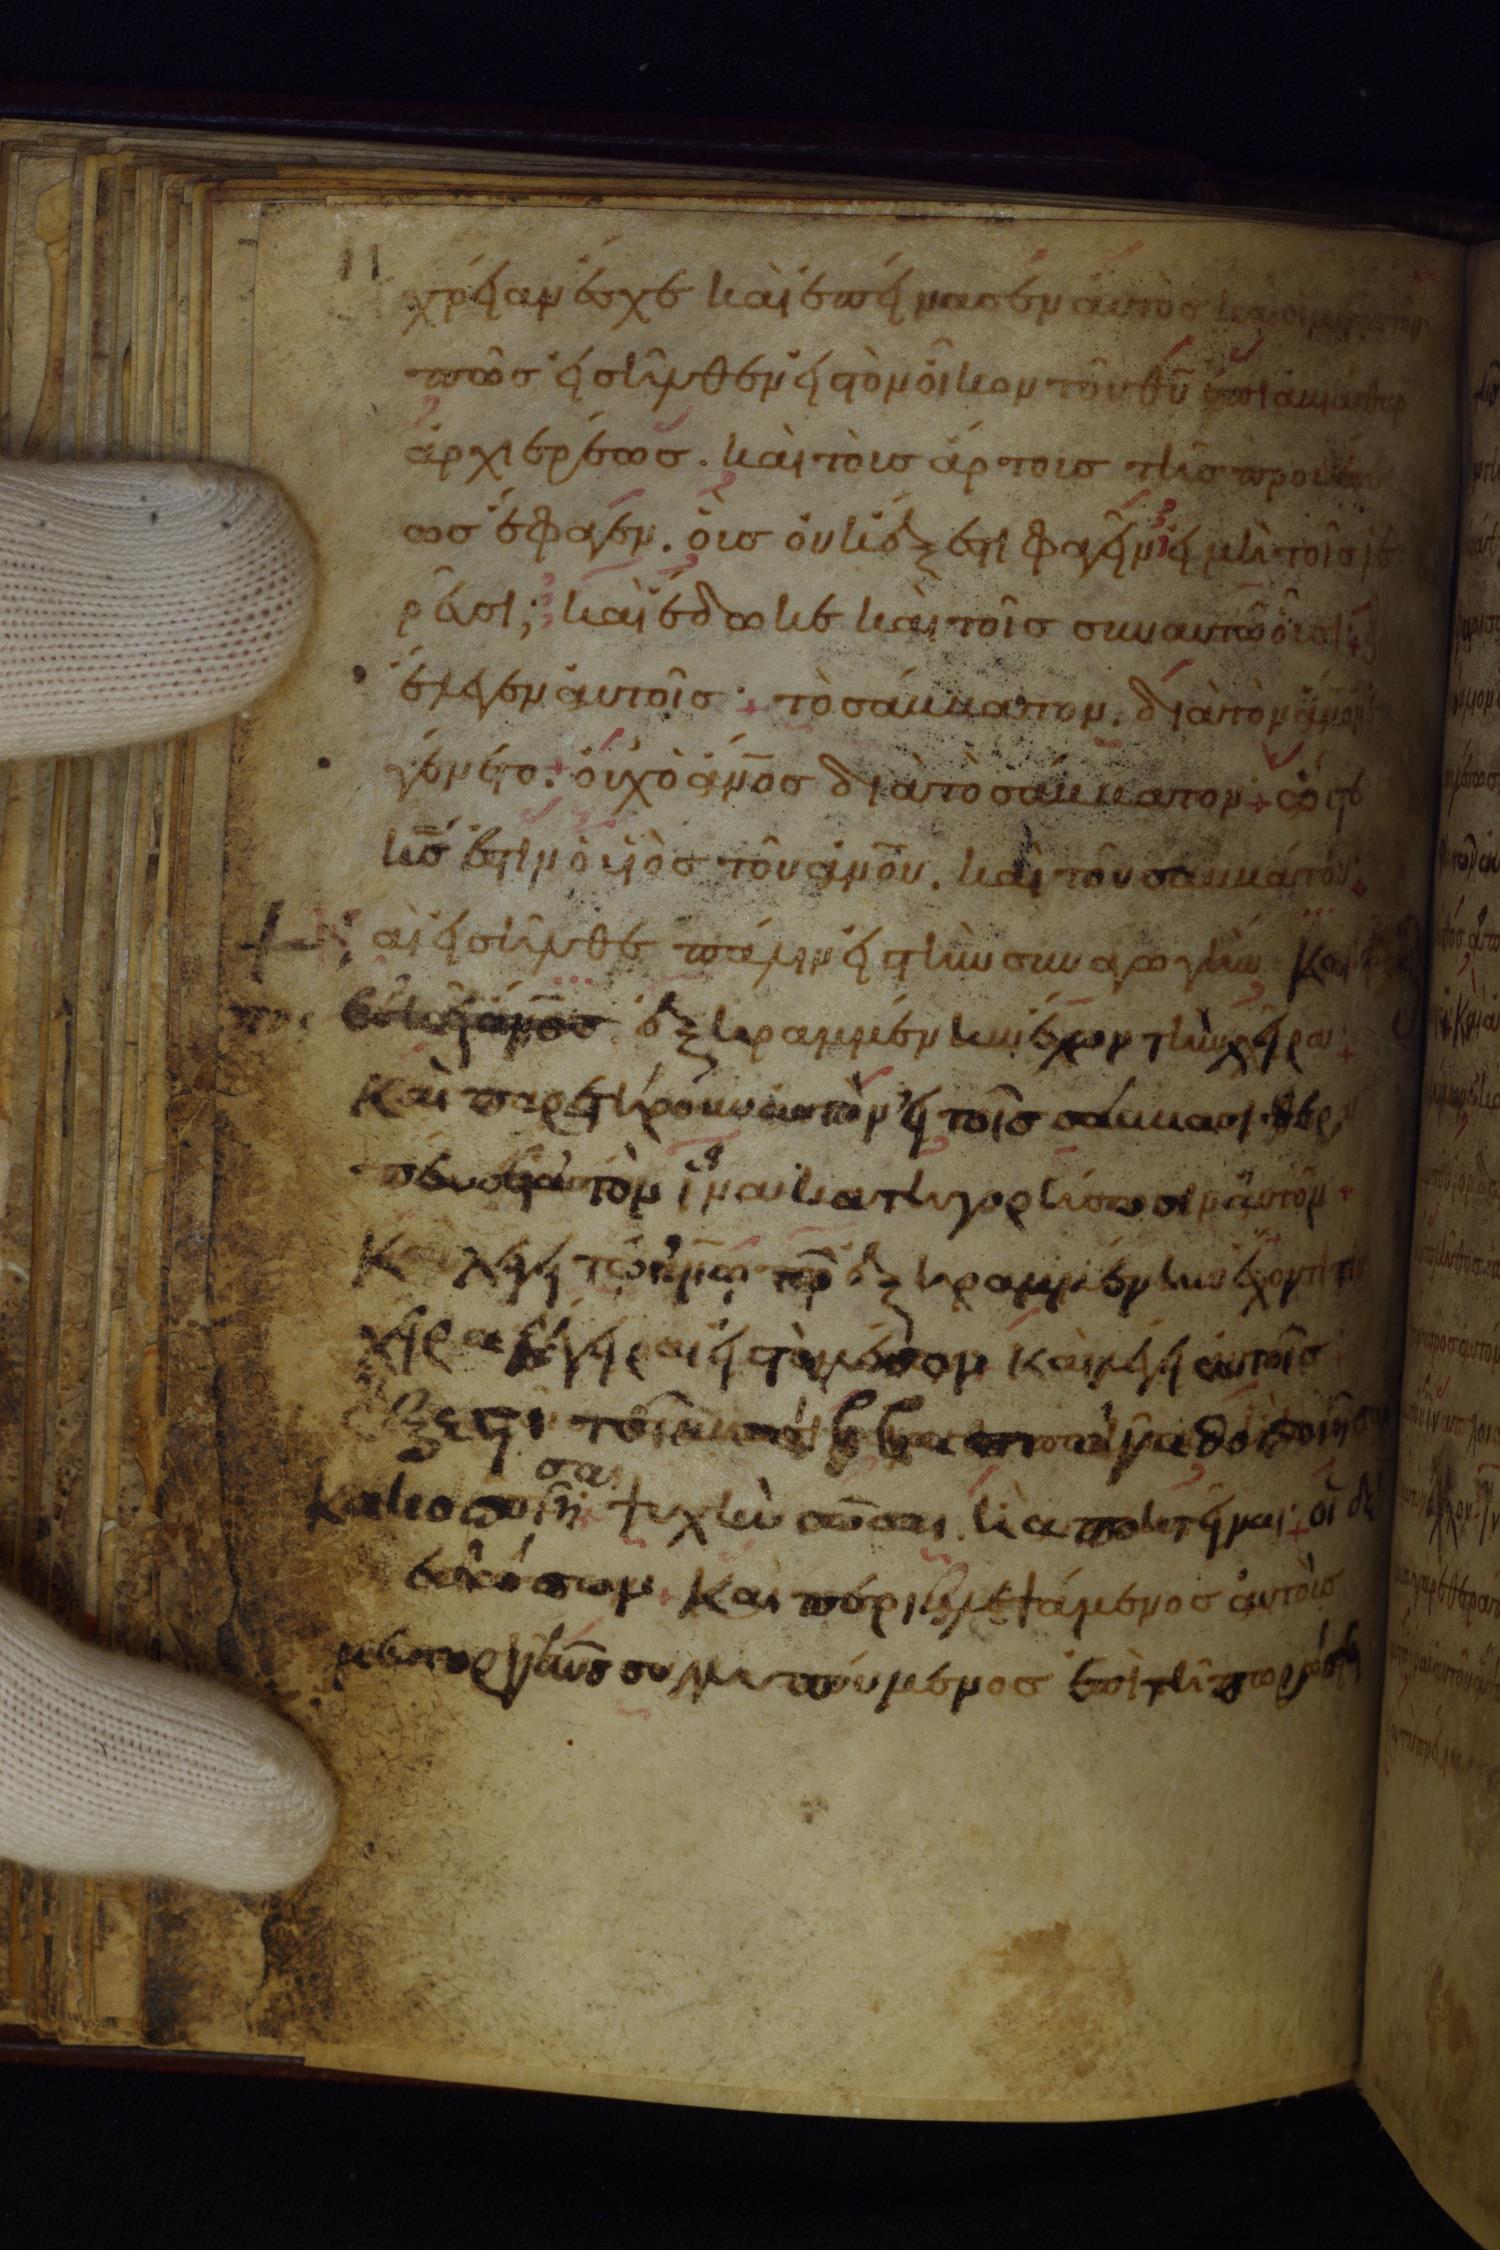 11
χρείαν ἔσχε καὶ ἐπείνασεν αὐτὸς καὶ οἱ μετ αὐτοῦ
πῶς εἰσῆλθεν εἰς τὸν οἶκον τοῦ θῦ ἐπὶ ἀβιάθαρ
ἀρχιερέως. καὶ τοὺς ἄρτους τῆς προθέσε
ως ἔφαγεν. οἷς οὐκ ἔξεστι φαγεῖν εἰ μὴ τοῖς ἱε
ρεῦσι; καὶ ἔδωκε καὶ τοῖς συν αυτῶ οὖσι
ἔλεγεν αυτοῖς· τὸ σάββατον. διὰ τὸν ἄνον ἐ
γένετο. οὐχ ὁ ἄνος διὰ τὸ σάββατον ὥστε
κς ἐστιν ὁ υἱὸς τοῦ ἀνου. καὶ τοῦ σαββάτου
Καὶ εἰσῆλθε πάλιν εἰς τὴν συναγωγὴν και
ἐκεῖ ἄνος ἐξηραμμένην ἔχων τὴν χεῖρα
καὶ παρετήρουν αυτὸν εἰ τοῖς σάββασι θερα
πεύσει αυτὸν ἵνα κατηγορήσωσιν αὐτοῦ
Και λέγει τῶ ἀνω τῶ ἐξηραμμένην ἔχοντι τὴν
χεῖρα ἔγειραι εἰς τὸ μέσον καὶ λέγει αυτοῖς
ἔξεστι τοῖς σάββασι ἀγαθοποιῆσαι
κακοποιῆσαι ψυχὴν σῶσαι ἢ αποκτεῖναι· οἱ δὲ
εσιώπων Και περιβλεψάμενος αὐτοὺς
μετ οργῆς συλλυπούμενος ἐπὶ τῆ πωρώσει